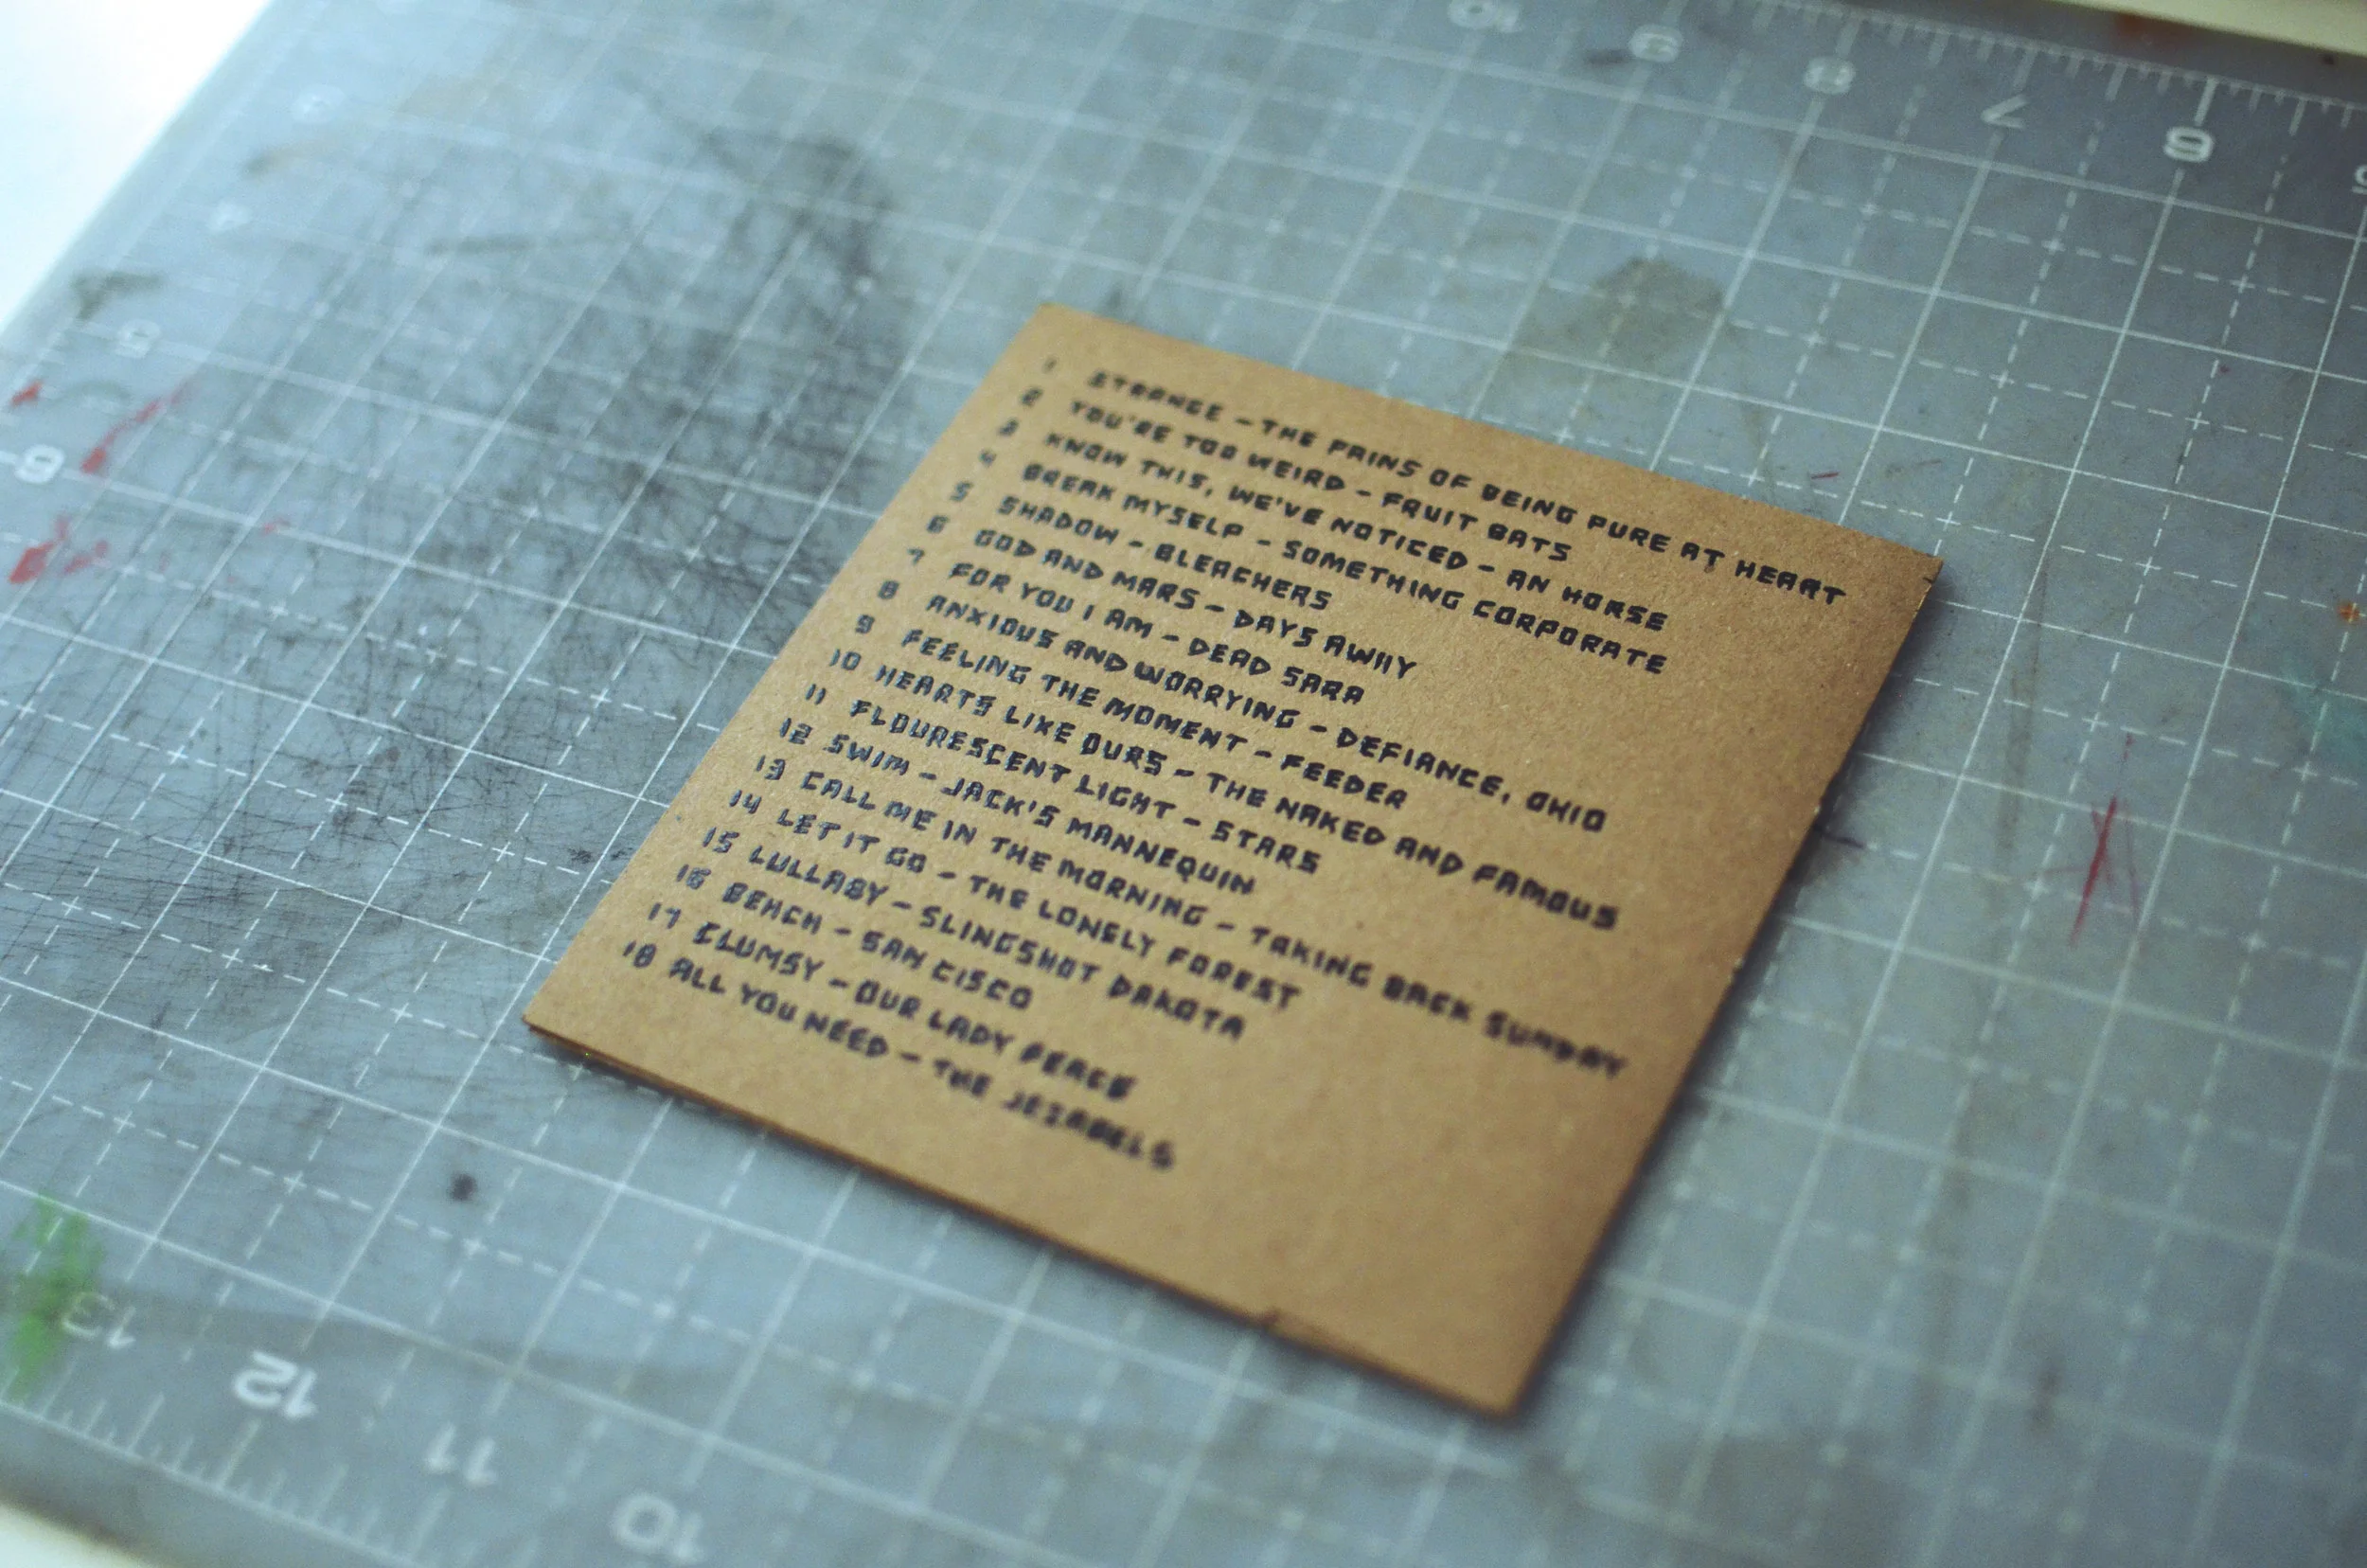 1 STRANGE - THE PAINS OF BEING PURE AT HEART
2 YOU'RE TOO WEIRD - FRUIT BATS
3 KNOW THIS, WE'VE NOTICED - AN HORSE
4 BREAK MYSELF - SOMETHING CORPORATE
5 SHADOW - BLEACHERS
6 GOD AND MARS - DAYS AWAY
7 FOR YOU I AM - DEAD SARA
8 ANXIOUS AND WORRYING - DEFIANCE, OHIO
9 FEELING THE MOMENT - FEEDER
10 HEARTS LIKE OURS - THE NAKED AND FAMOUS
11 FLOURESCENT LIGHT - STARS
12 SWIM - JACK'S MANNEQUIN
13 CALL ME IN THE MORNING - TAKING BACK SUNDAY
14 LET IT GO - THE LONELY FOREST
15 LULLABY - SLINGSHOT DAKOTA
16 BEACH - SAN CISCO
17 CLUMSY - OUR LADY PEACE
18 ALL YOU NEED - THE JEZABELS
10 9 8 7 6 5
3
4
5
6
13 12 11 10